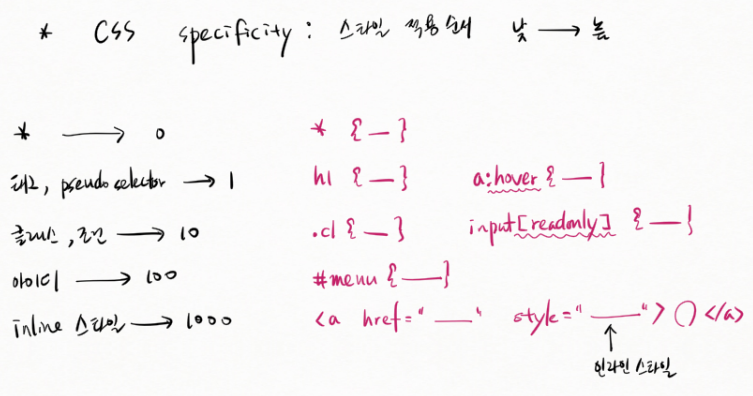 * CSS specificity : 스타일 적용 순서 낮 → 높
* → 0 * { — }
태그, pseudo selector → 1 h1 { — } a:hover { — }
클래스, 조건 → 10 .cl { — } input[readonly] { — }
아이디 → 100 #menu { — }
inline 스타일 → 1000 <a href="—" style="—"> () </a>
인라인 스타일